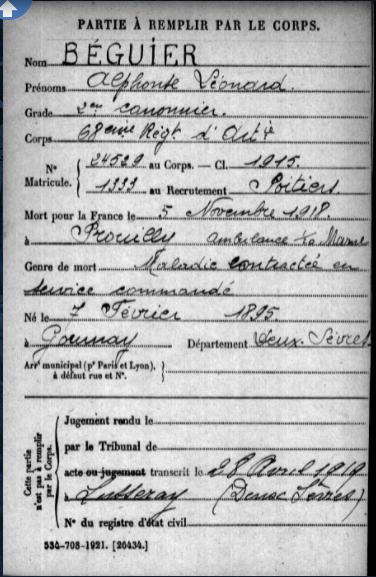 PARTIE À REMPLIR PAR LE CORPS.
Nom BÉGUIER
Prénoms Alphonse Léonard.
Grade 2eme canonnier.
Corps 68eme Régt d'Artie
N° Matricule. { 24529 au Corps. — Cl. 1915.
1333 au Recrutement Poitiers
Mort pour la France le 5 Novembre 1918.
à Prouilly ambulance Marne
Genre de mort Maladie contractée en
service commandé
Né le 7 Février 1895.
à Gournay Département Deux-Sèvres
Arrt municipal (pr Paris et Lyon), à défaut rue et N°. }
Cette partie n'est pas à remplir par le Corps.
Jugement rendu le
par le Tribunal de
acte ou jugement transcrit le 28 Avril 1919
à Lusseray (Deux Sèvres)
N° du registre d'état civil
534-708-1921. [26434.]